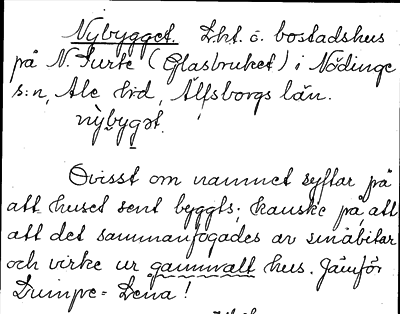 Nybygget. Lht. o. bostadshus
på N. Surte (Glasbruket) i Nödinge
s:n, Ale hrd, Älfsborgs län.
nỳbygət.
Ovisst om namnet syftar på
att huset sent byggts; kanske på att
att det sammanfogades av småbitar
och virke ur gammalt hus. Jämför
Dumpe-Lena!